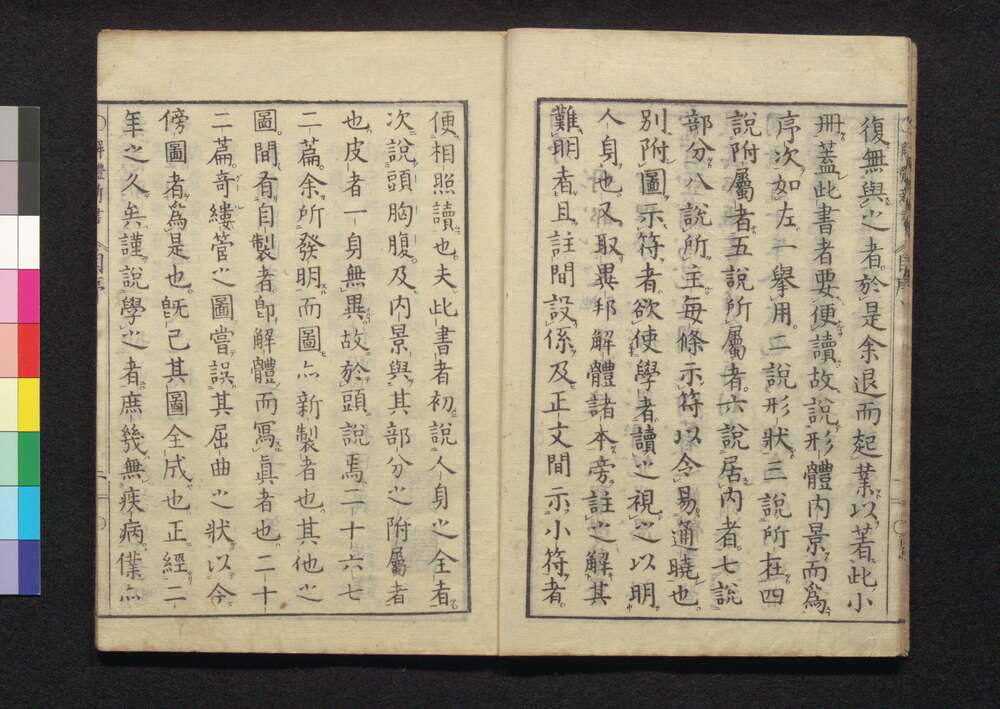 復無與之者於是余退而起業以著此小
冊蓋此書者要便讀故說形體内景而爲
序次如左一擧用二說形狀三說所在四
說附屬者五說所屬者六說居内者七說
部分八說所主每條示符以令易通曉也
別附圖示符者欲使學者讀之視之以明
人身也又取異邦解體諸本旁註之解其
難明者且註間設係及正文間示小符者
便相照讀也夫此書者初說人身之全者
次說頭胸腹及内景與其部分之附屬者
也皮者一身無異故於頭說焉二十六七
二篇余所發明而圖亦新製者也其他之
圖間有自製者卽解體而寫眞者也二十
二篇奇縷管之圖嘗誤其屈曲之狀以今
傍圖者爲是也旣已其圖全成也正經二
年之久矣謹說學之者庶幾無疾病僕亦